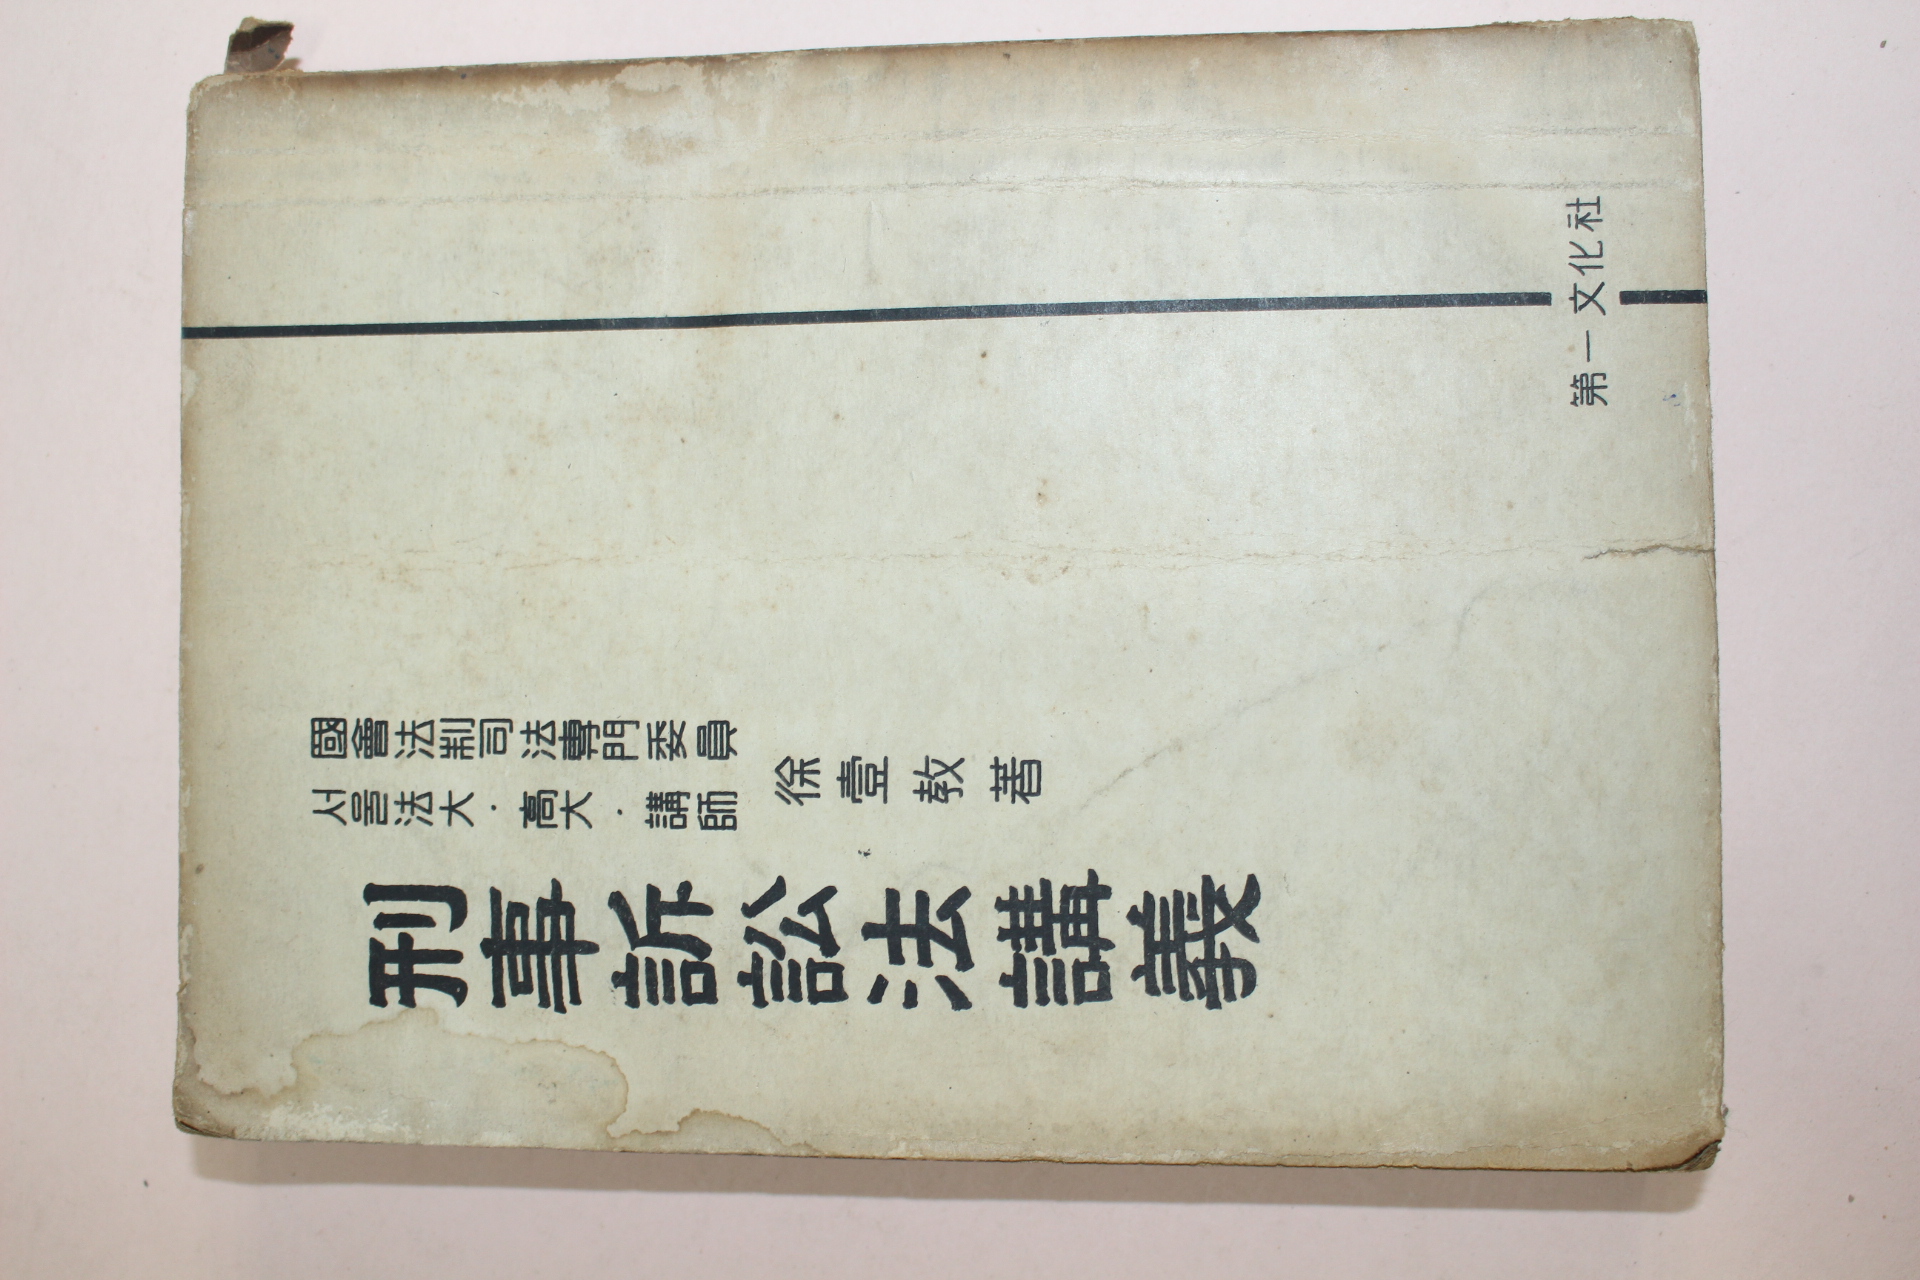 國會法制司法專門委員
서울法大·高大·講師
徐壹教 著
刑事訴訟法講義
第一文化社